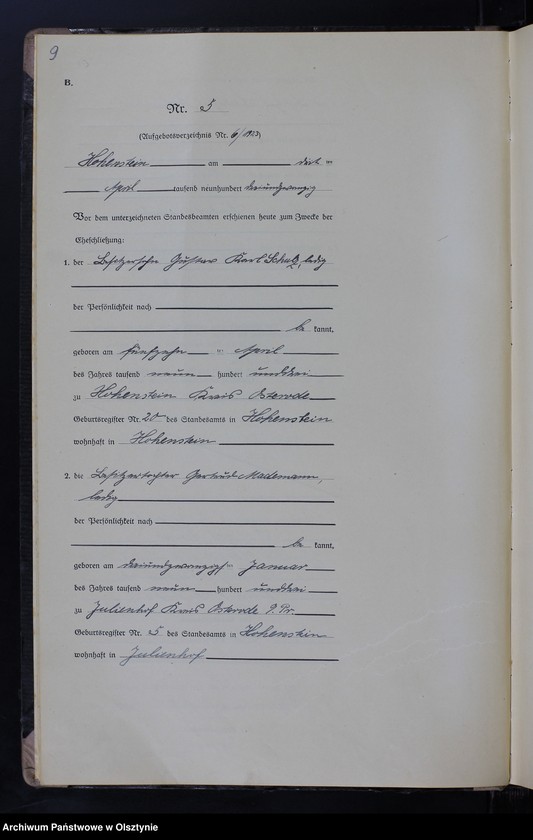 9
B.
Nr. 5
(Aufgebotsverzeichnis Nr. 6/1923)
Hohenstein am
April tausend neunhundert dreiundzwanzig
Vor dem unterzeichneten Standesbeamten erschienen heute zum Zwecke der
Eheschließung:
1. der Besitzersohn Gustav Karl Schulz, ledig
der Persönlichkeit nach
be kannt,
geboren am fünfzehn ten April
des Jahres tausend neun hundert unddrei
zu Hohenstein Kreis Osterode
Geburtsregister Nr. 20 des Standesamts in Hohenstein
wohnhaft in Hohenstein
2. die Besitzertochter Gertrud Mademann,
ledig
der Persönlichkeit nach
be kannt,
geboren am dreiundzwanzigsten Januar
des Jahres tausend neun hundert unddrei
zu Julienhof Kreis Osterode O. Pr.
Geburtsregister Nr. 5 des Standesamts in Hohenstein
wohnhaft in Julienhof
Archiwum Państwowe w Olsztynie